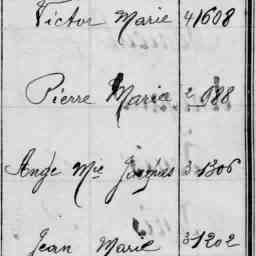 Victor Marie 4 1608
Pierre Marie 2 988
Ange Mie Jacques 3 1306
Jean Marie 3 1202